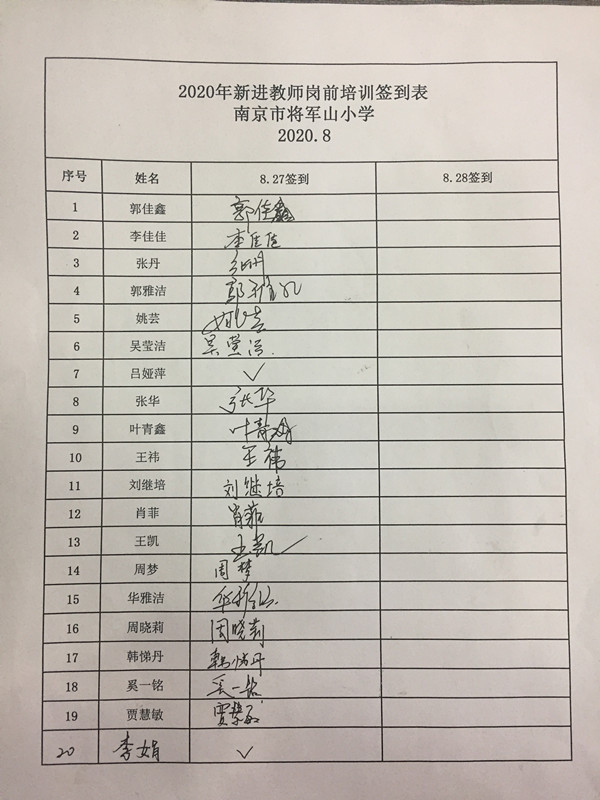 2020年新进教师岗前培训签到表
南京市将军山小学
2020.8
序号 姓名 8.27签到 8.28签到
1 郭佳鑫 郭佳鑫
2 李佳佳 李佳佳
3 张丹 张丹
4 郭雅洁 郭雅洁
5 姚芸 姚芸
6 吴莹洁 吴莹洁
7 吕娅萍 ✓
8 张华 张华
9 叶青鑫 叶青鑫
10 王祎 王祎
11 刘继培 刘继培
12 肖菲 肖菲
13 王凯 王凯
14 周梦 周梦
15 华雅洁 华雅洁
16 周晓莉 周晓莉
17 韩悌丹 韩悌丹
18 奚一铭 奚一铭
19 贾慧敏 贾慧敏
20 李娟 ✓